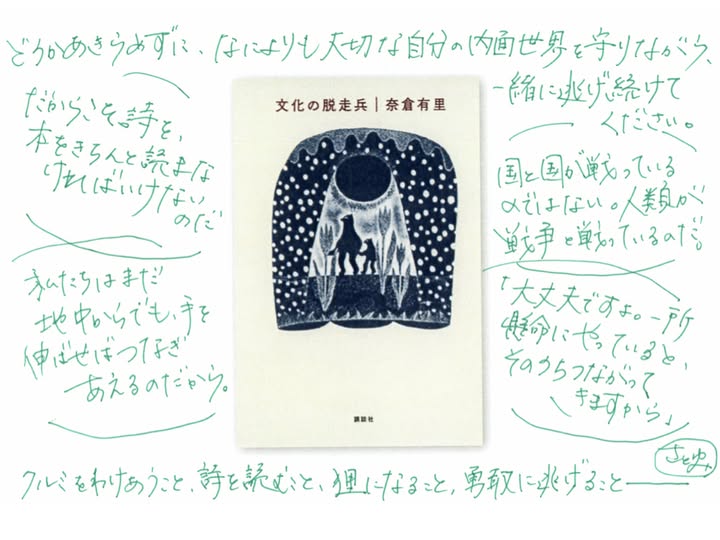 どうかあきらめずに、なによりも大切な自分の内面世界を守りながら、
一緒に逃げ続けて
ください。
だからこそ詩を、
本をきちんと読まな
ければいけない
のだ
文化の脱走兵|奈倉有里
国と国が戦っている
のではない。人類が
戦争と戦っているのだ。
私たちはまだ
地中からでも、手を
伸ばせばつなぎ
あえるのだから。
「大丈夫ですよ。一所
懸命にやっていると、
そのうちつながって
きますから」
講談社
クルミをわけあうこと、詩を読むこと、狸になること、勇敢に逃げること――